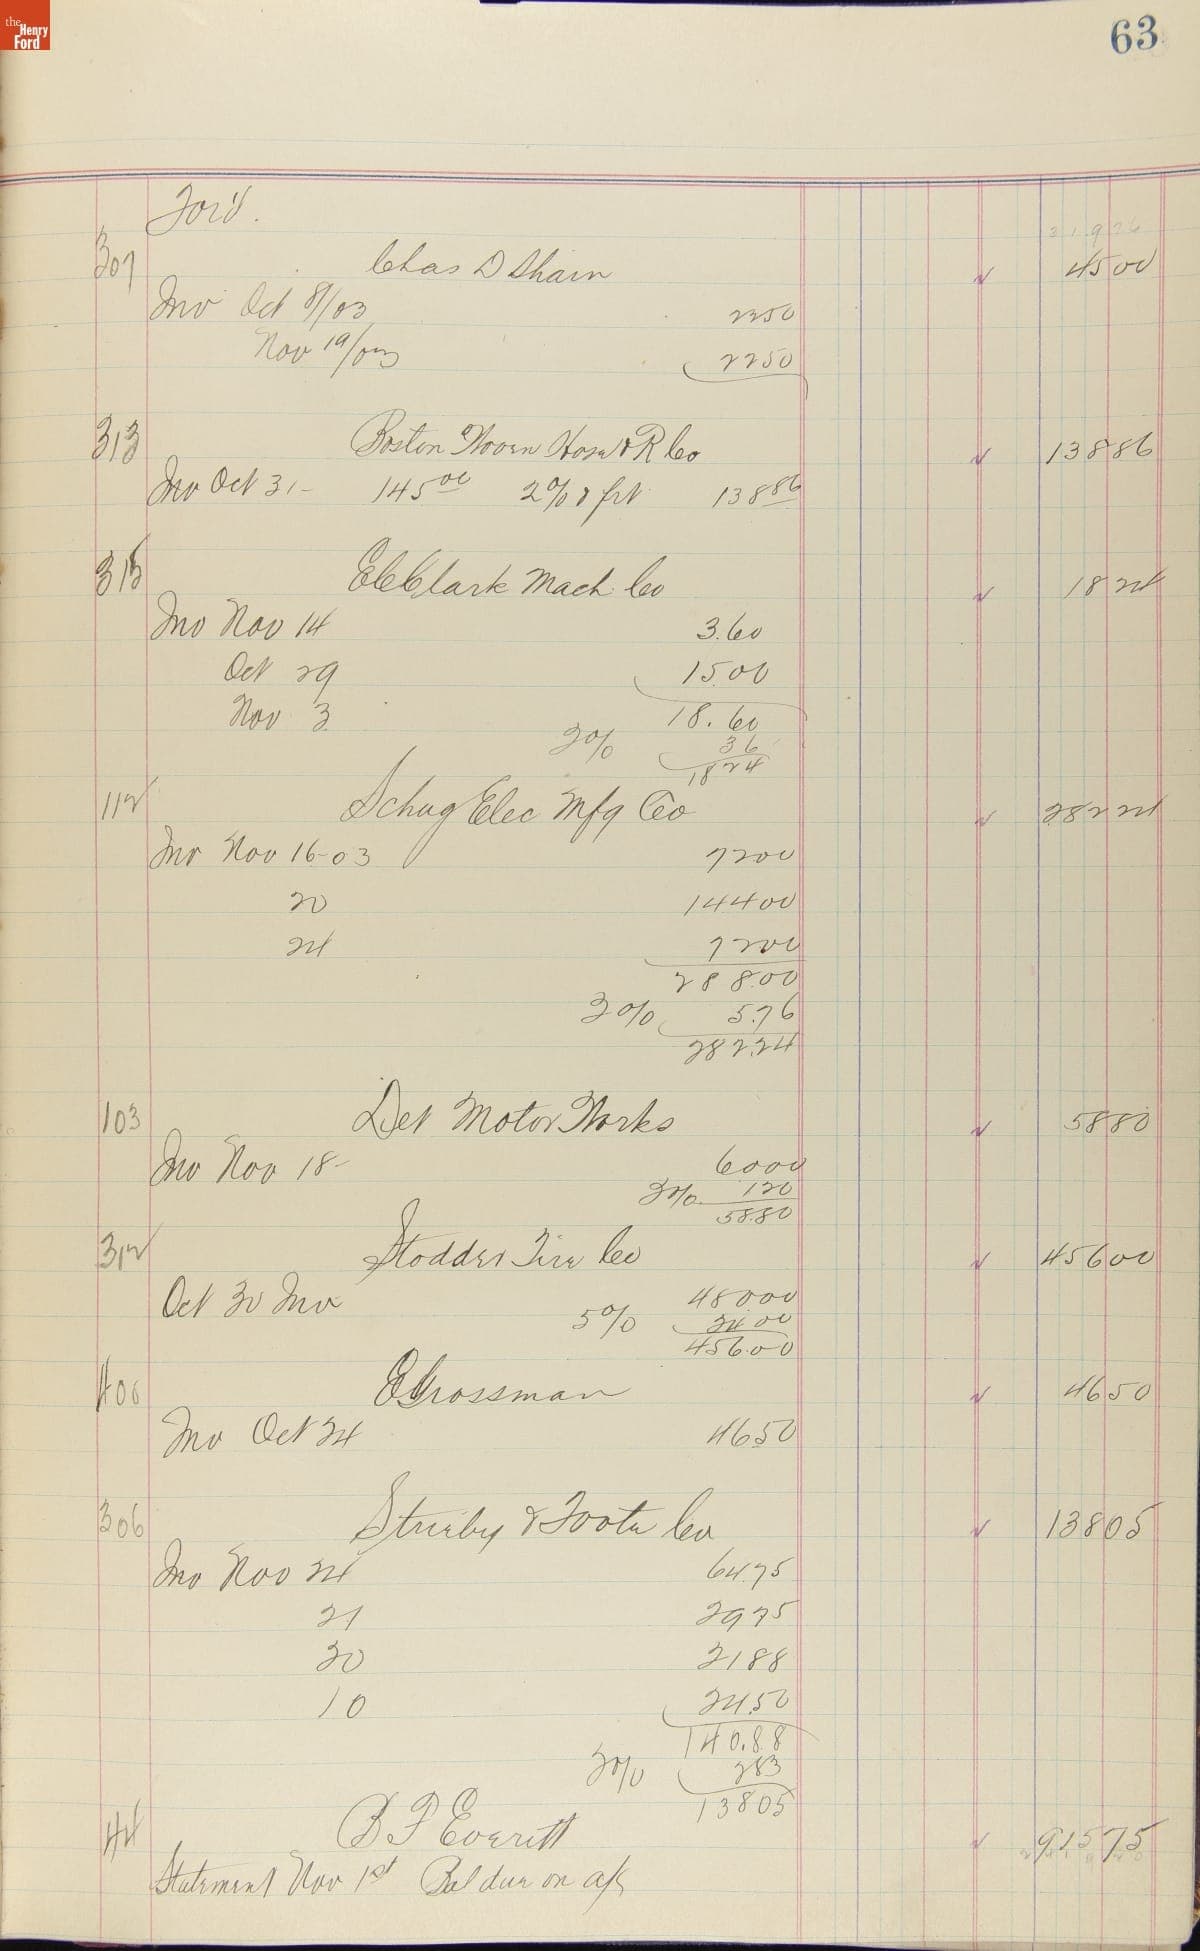 the Henry Ford
63
For'd.
307 Chas D Shain 4500
Inv Oct 8/03 2250
Nov 19/03 2250
313 Boston Woven Hose & R Co 13886
Inv Oct 31- 145 00 2% & frt 138 86
315 E C Clark Mach Co 1824
Inv Nov 14 3.60
Oct 29 15.00
Nov 3 18.60
2% 36
1824
112 Schug Elec Mfg Co 28224
Inv Nov 16-03 7200
20 14400
24 7200
288.00
2% 5.76
282.24
103 Det Motor Works 5880
Inv Nov 18- 6000
2% 120
58.80
312 Stodder Tire Co 45600
Oct 30 Inv 48000
5% 24 00
456.00
400 E Grossman 4650
Inv Oct 24 4650
306 Strieby & Foote Co 13805
Inv Nov 24 64.75
21 2975
20 2188
10 24.50
140.88
2% 283
13805
44 B F Everitt 91575
Statement Nov 1st Bal due on a/c